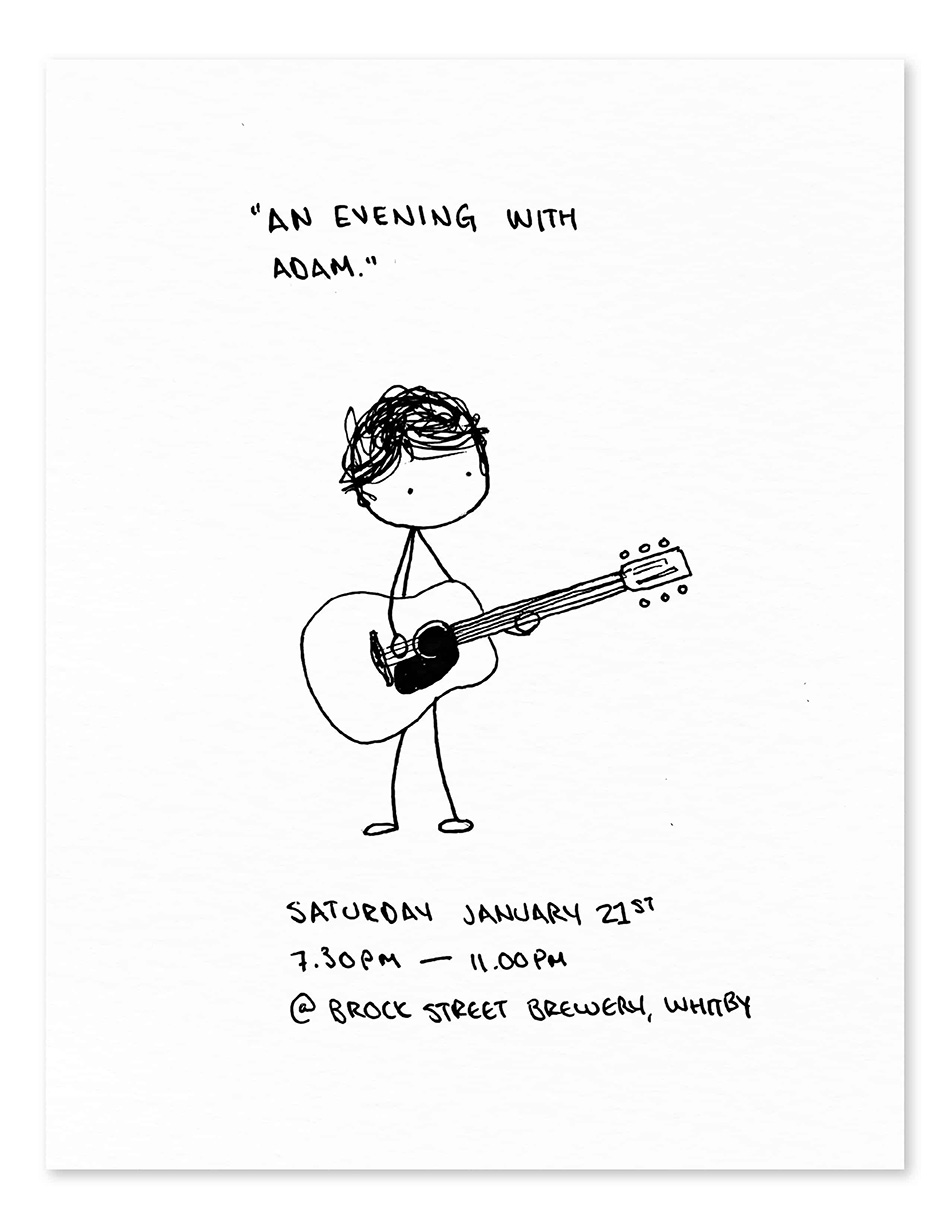 "AN EVENING WITH
ADAM."
SATURDAY JANUARY 21ST
7.30PM — 11.00PM
@ BROCK STREET BREWERY, WHITBY